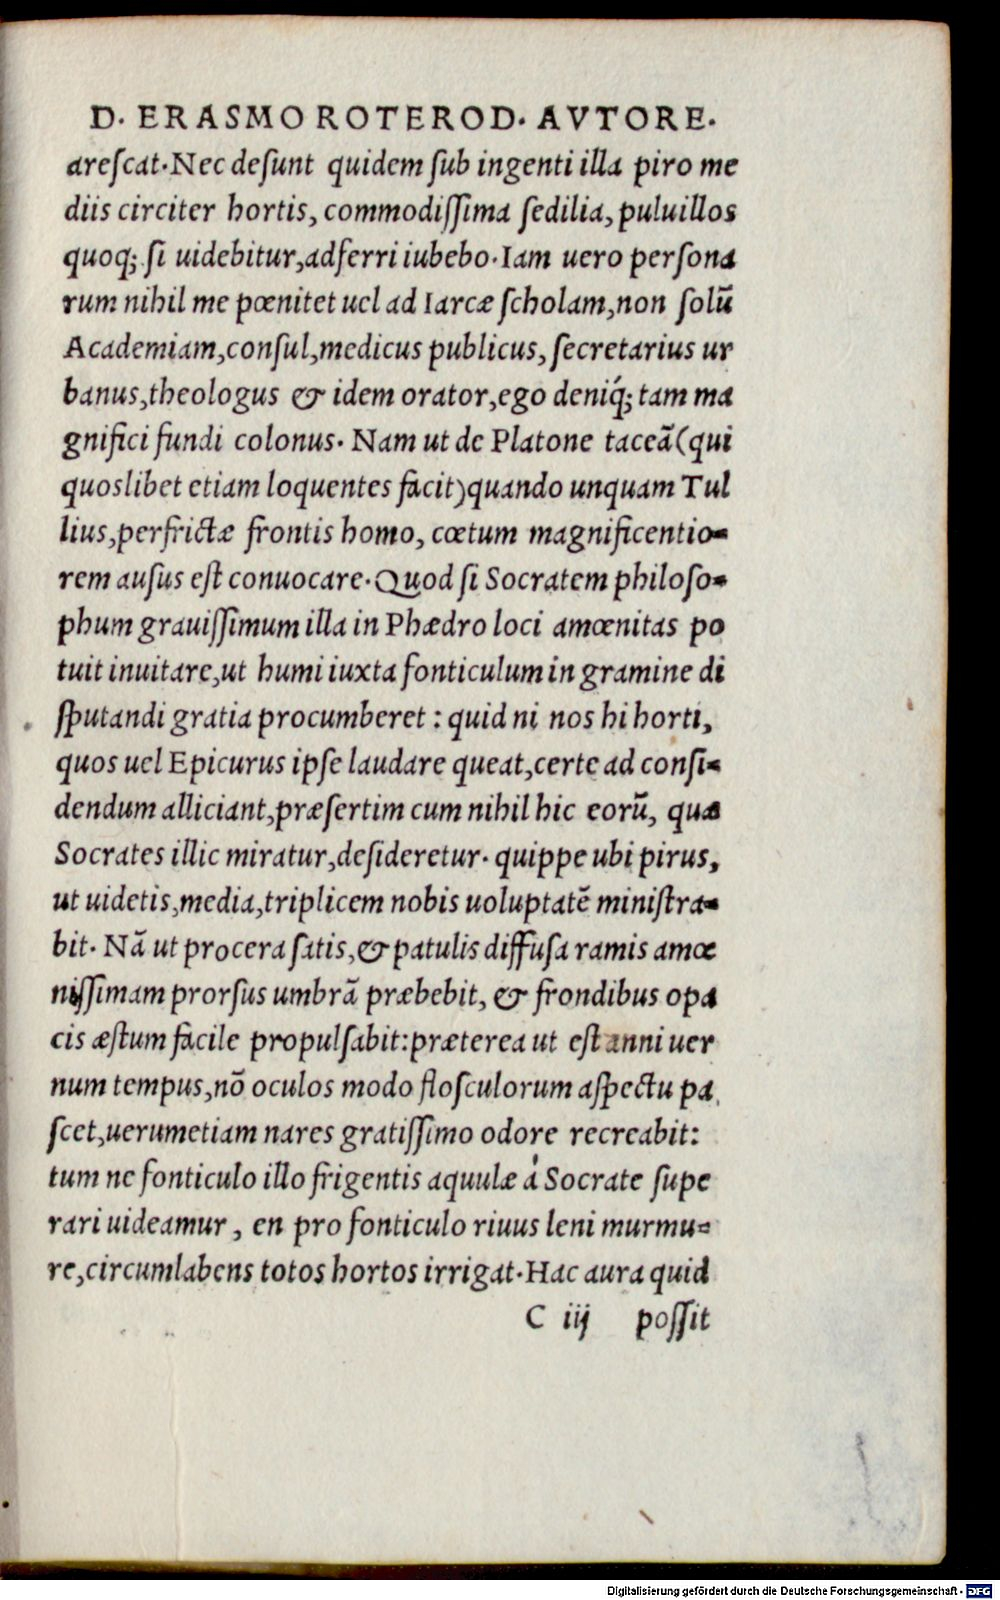 D. ERASMO ROTEROD. AVTORE.
areſcat. Nec deſunt quidem ſub ingenti illa piro me
diis circiter hortis, commodiſſima ſedilia, puluillos
quoq; ſi uidebitur, adferri iubebo. Iam uero perſona
rum nihil me pœnitet uel ad Iarcæ ſcholam, non ſolū
Academiam, conſul, medicus publicus, ſecretarius ur
banus, theologus & idem orator, ego deniq́; tam ma
gnifici fundi colonus. Nam ut de Platone taceā (qui
quoslibet etiam loquentes facit) quando unquam Tul
lius, perfrictæ frontis homo, cœtum magnificentio-
rem auſus eſt conuocare. Quod ſi Socratem philoſo-
phum grauiſſimum illa in Phædro loci amœnitas po
tuit inuitare, ut humi iuxta fonticulum in gramine di
ſputandi gratia procumberet : quid ni nos hi horti,
quos uel Epicurus ipſe laudare queat, certe ad conſi-
dendum alliciant, præſertim cum nihil hic eorū, quæ
Socrates illic miratur, deſideretur. quippe ubi pirus,
ut uidetis, media, triplicem nobis uoluptatē miniſtra-
bit. Nā ut procera ſatis, & patulis diffuſa ramis amœ
niſſimam prorſus umbrā præbebit, & frondibus opa
cis æſtum facile propulſabit: præterea ut eſt anni uer
num tempus, nō oculos modo floſculorum aſpectu pa
ſcet, uerumetiam nares gratiſſimo odore recreabit:
tum ne fonticulo illo frigentis aquulæ á Socrate ſupe
rari uideamur, en pro fonticulo riuus leni murmu-
re, circumlabens totos hortos irrigat. Hac aura quid
C iij poſſit
Digitalisierung gefördert durch die Deutsche Forschungsgemeinschaft - DFG